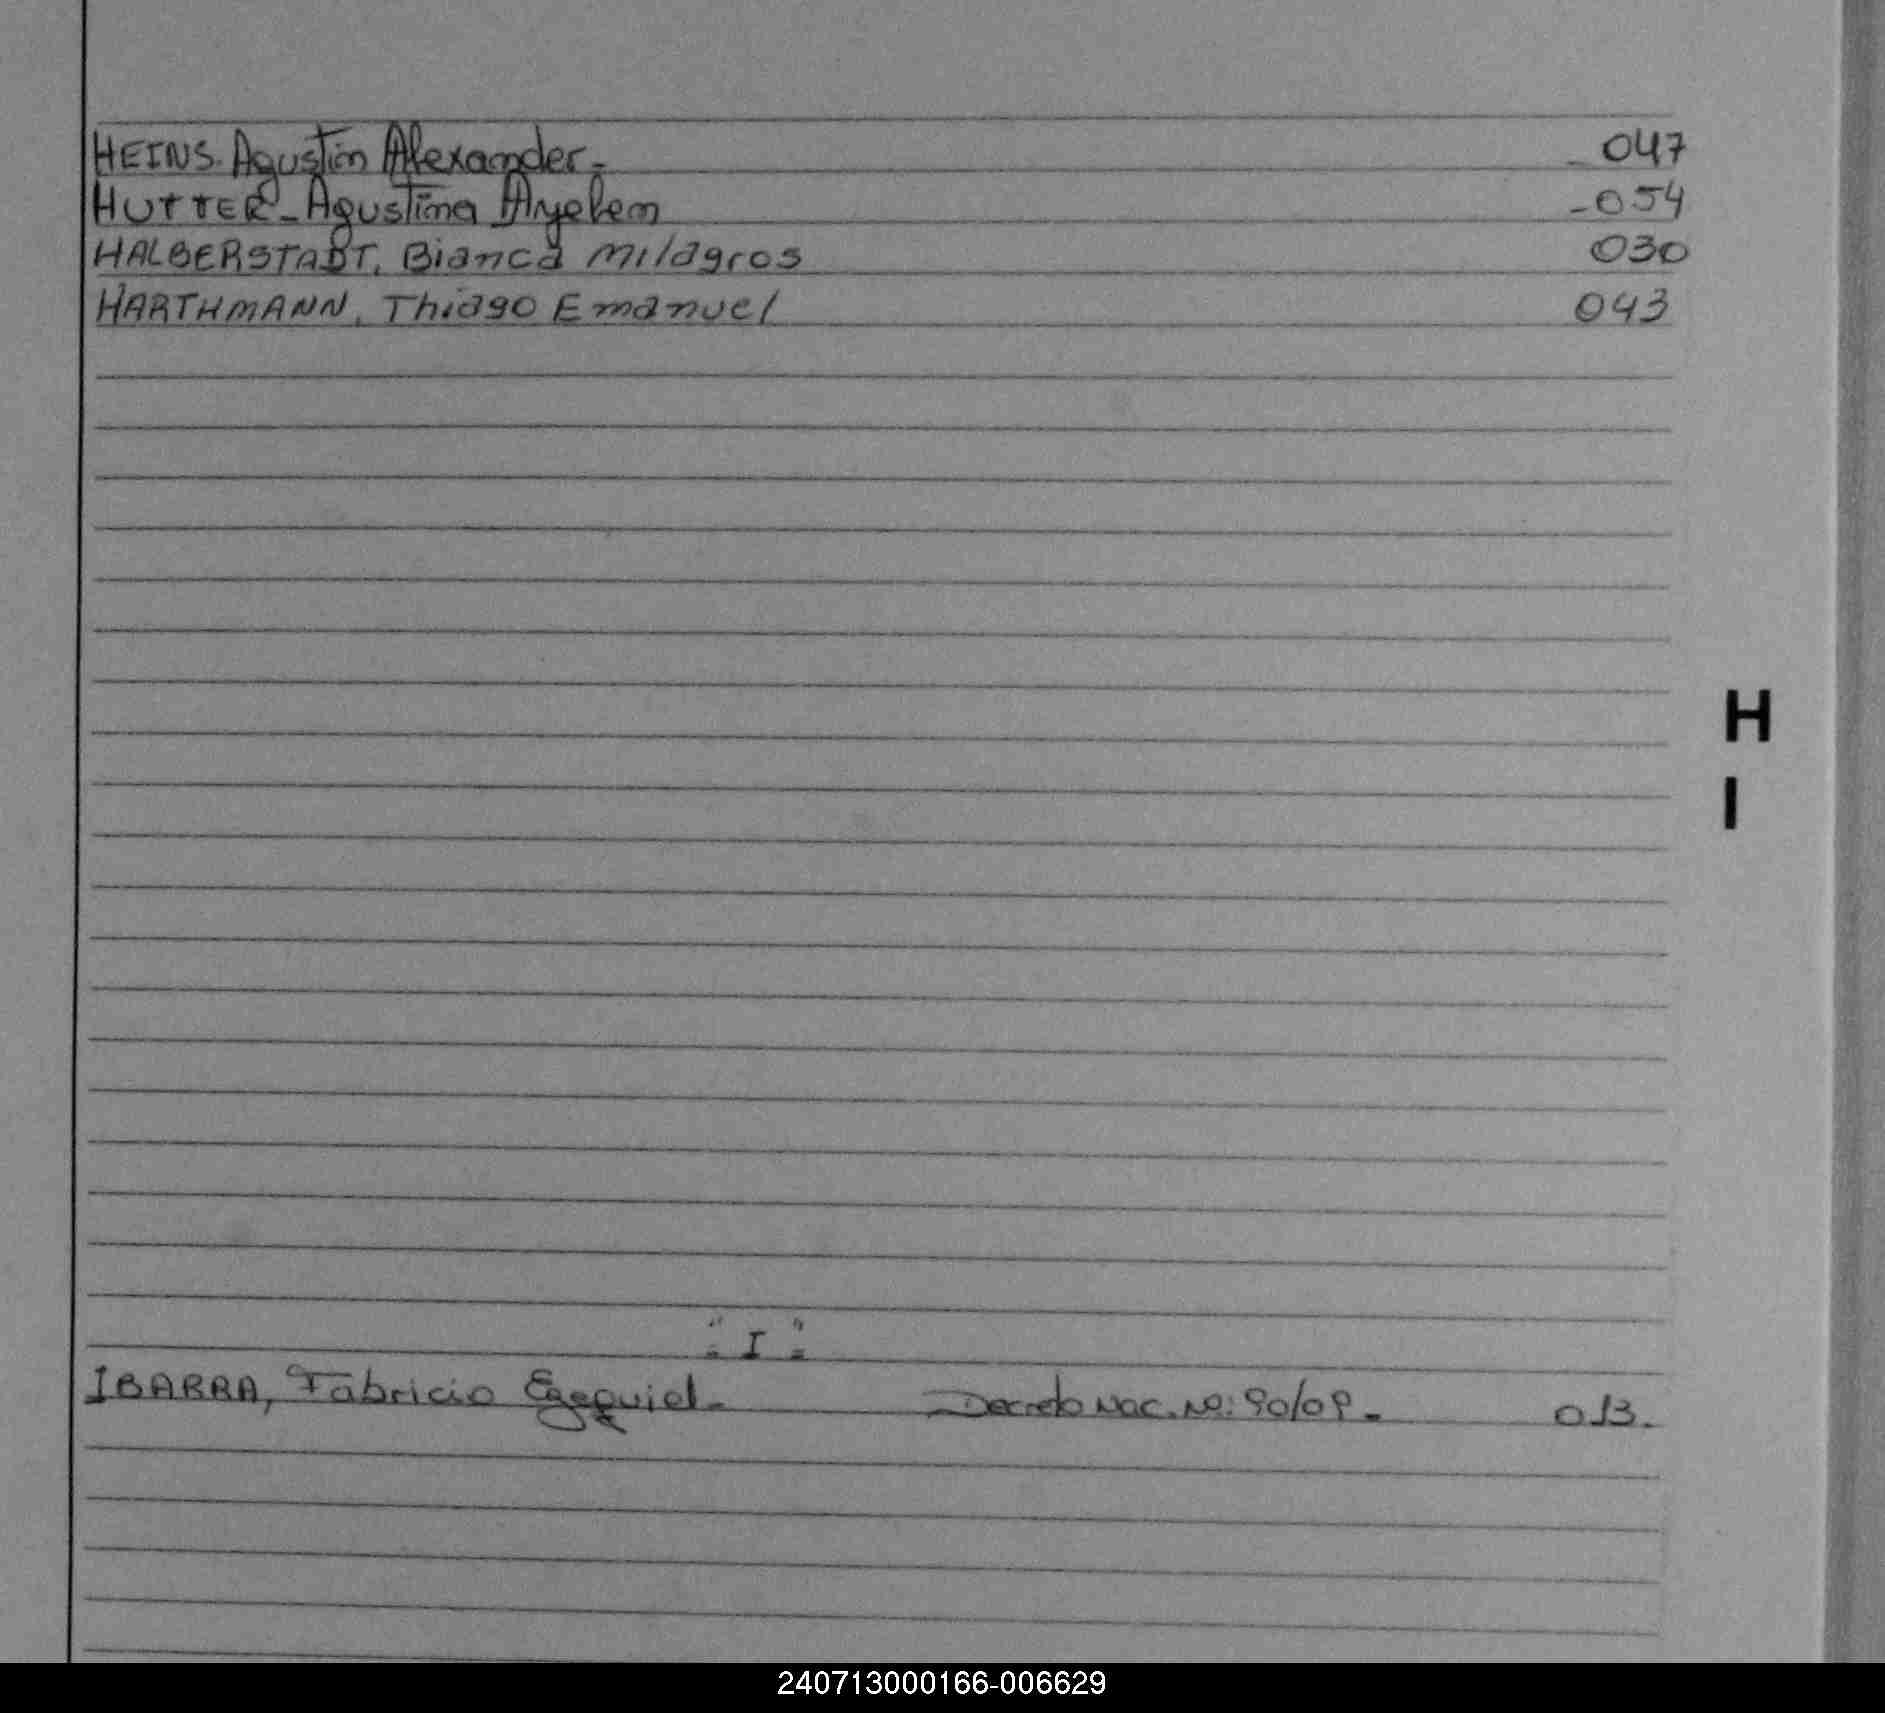 HEINS. Agustín Alexander.- 047
HUTTER - Agustina Ayelen -054
HALBERSTADT, Bianca Milagros 030
HARTHMANN, Thiago Emanuel 043
H
I
"I"
IBARRA, Fabricio Ezequiel.- Decreto Nac. Nº: 90/09.- 013.
240713000166-006629